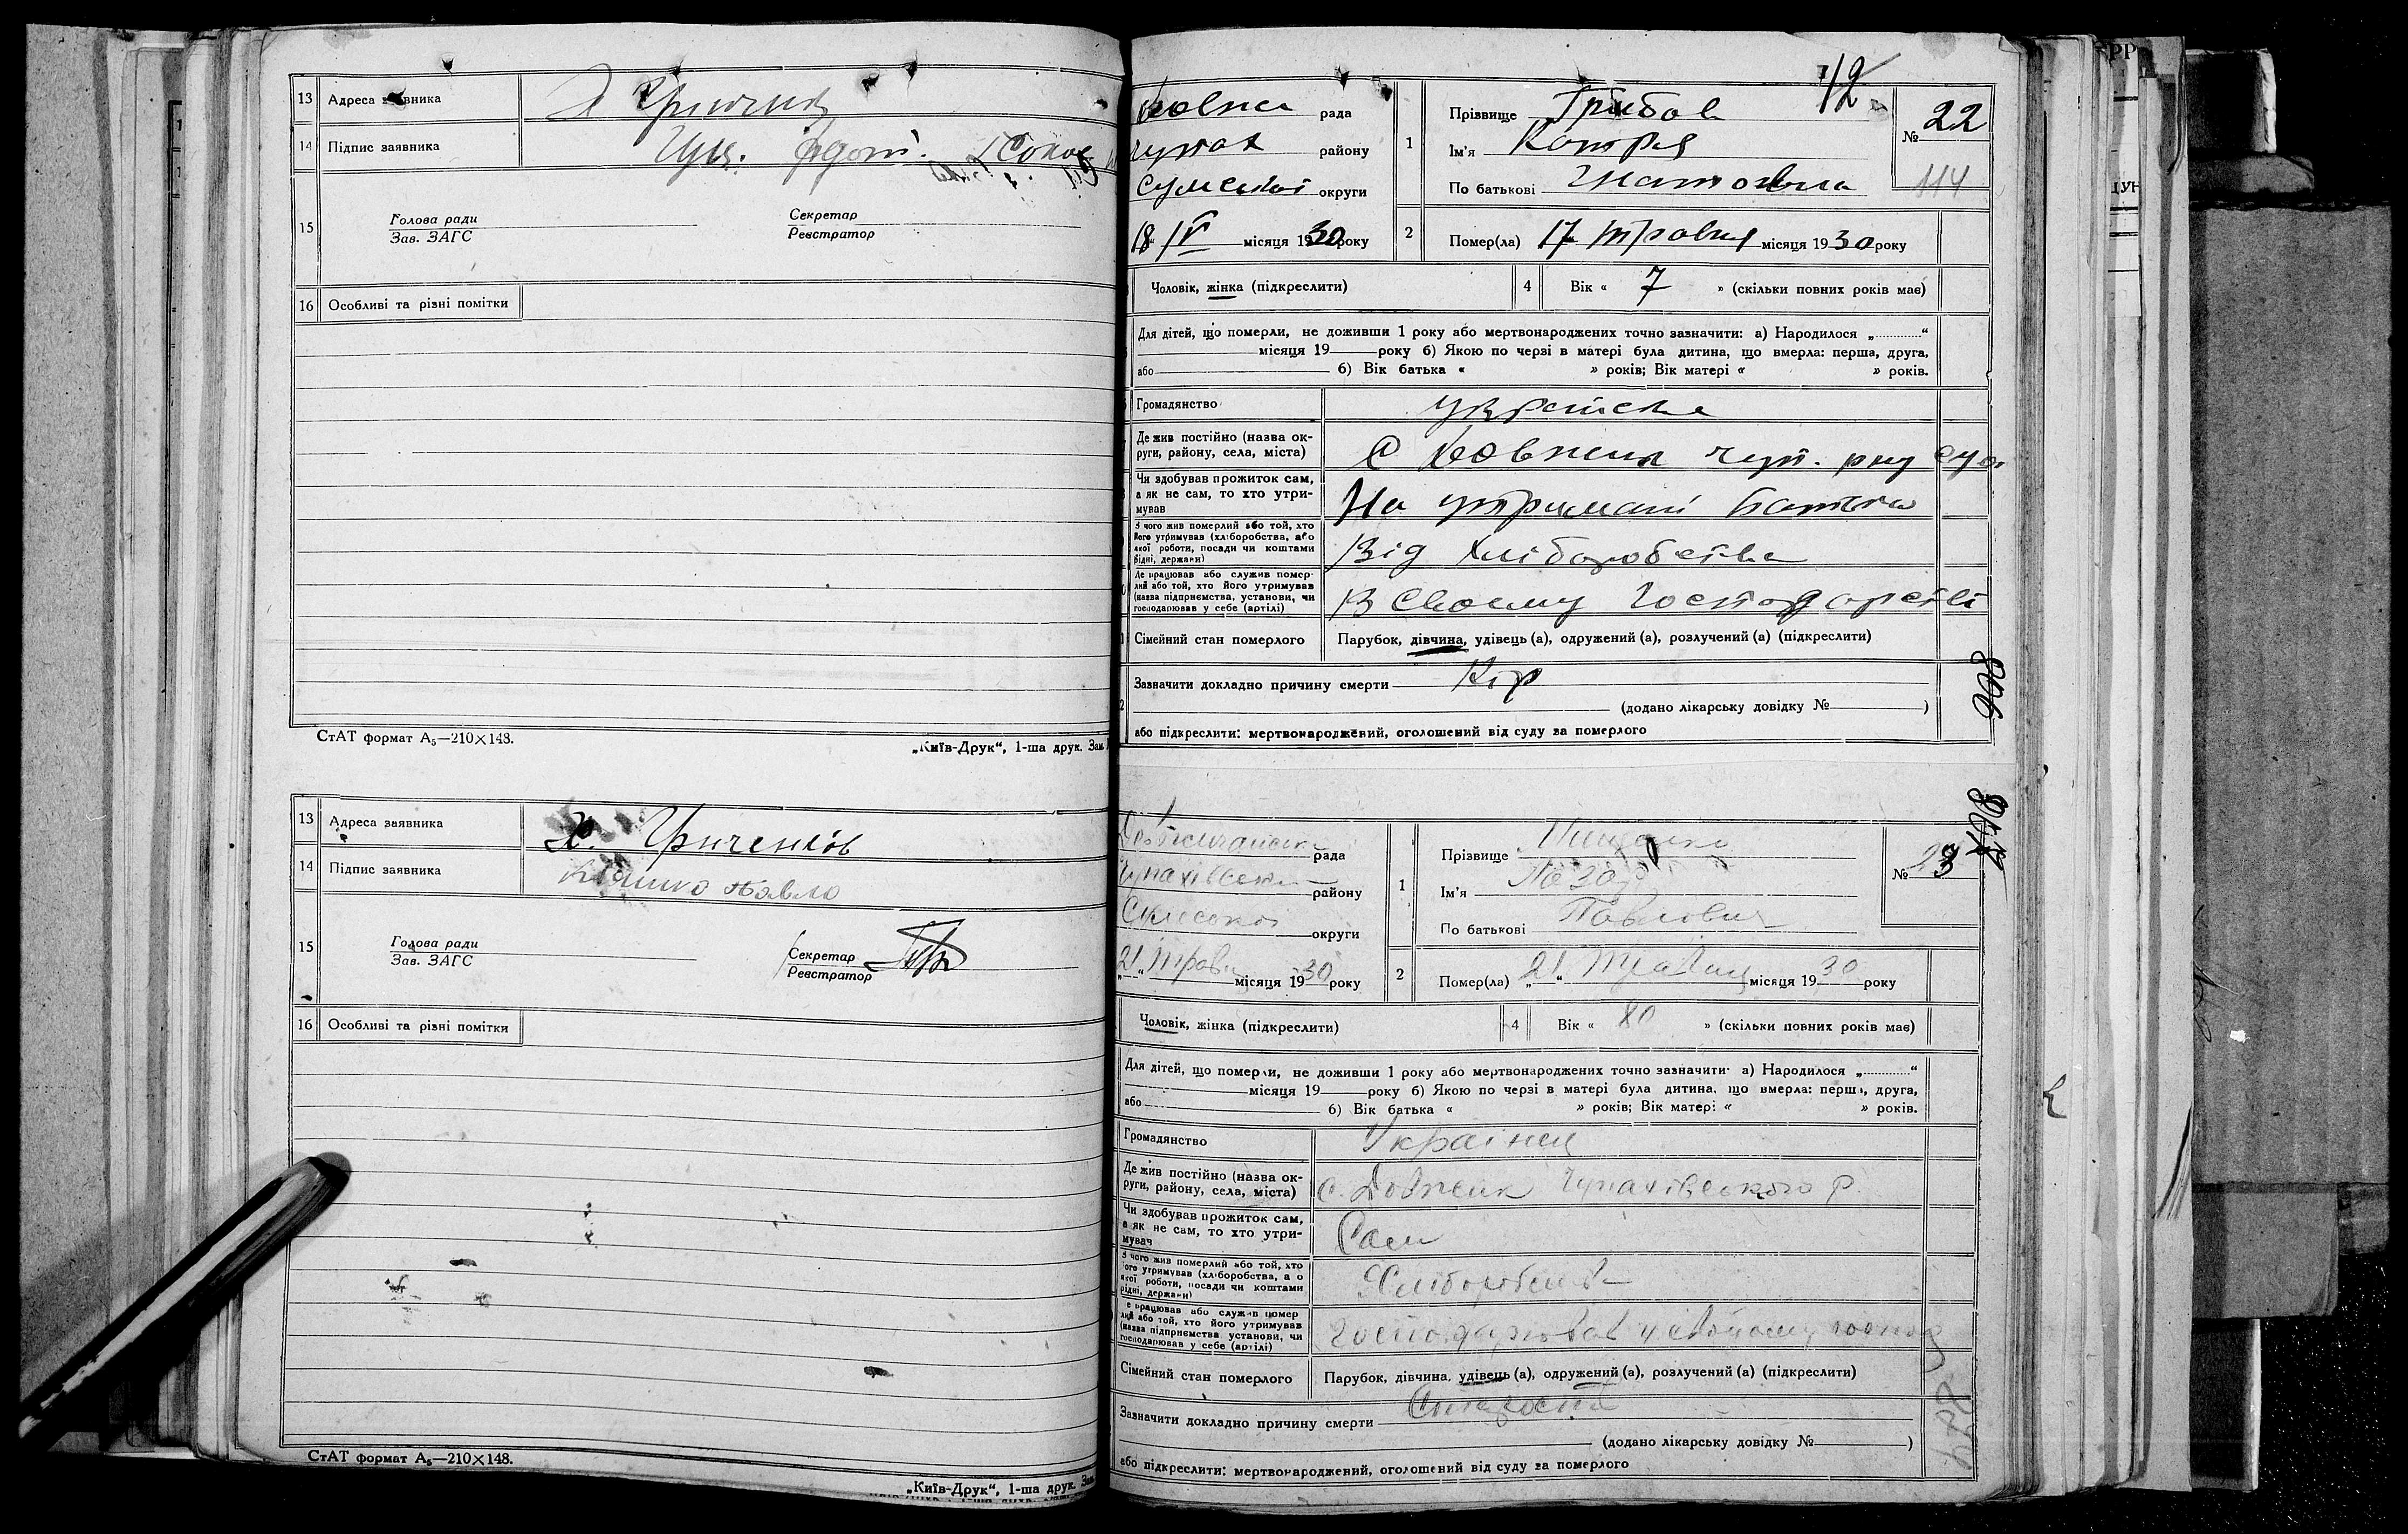 13 Адреса заявника
14 Підпис заявника
15 Голова ради Секретар
Зав. ЗАГС Реєстратор
16 Особливі та різні помітки
СтАТ формат А₅—210×148.
„Київ-Друк“, 1-ша друк. Зам.
13 Адреса заявника Х. Гриченків
14 Підпис заявника Павло
15 Голова ради Секретар
Зав. ЗАГС Реєстратор
16 Особливі та різні помітки
СтАТ формат А₅—210×148.
„Київ-Друк“, 1-ша друк. Зам.
12
рада
району
Сумської округи
18 /IV місяця 1930 року
1 Прізвище Грибова
Ім'я Катря
По батькові Гнатовна
№ 22
114
2 Помер(ла) 17 травня місяця 1930 року
Чоловік, жінка (підкреслити) 4 Вік « 7 » (скільки повних років має)
Для дітей, що померли, не доживши 1 року або мертвонароджених точно зазначити: а) Народилося „ “
місяця 19 року б) Якою по черзі в матері була дитина, що вмерла: перша, друга,
або 6) Вік батька « » років; Вік матері « » років.
Громадянство українська
Де жив постійно (назва ок-
руги, району, села, міста)
Чи здобував прожиток сам,
а як не сам, то хто утри-
мував На утримані батька
З чого жив померлий або той, хто
його утримував (хліборобства, або
якої роботи, посади чи коштами
рідні, держави) Від хліборобства
Де працював або служив помер-
лий або той, хто його утримував
(назва підприємства, установи, чи
господарював у себе (артілі) В своєму господарстві
Сімейний стан померлого Парубок, дівчина, удівець (а), одружений (а), розлучений (а) (підкреслити)
Зазначити докладно причину смерти Кір
(додано лікарську довідку № )
або підкреслити: мертвонароджений, оголошений від суду за померлого
рада
Чупахівської району
Сумської округи
„21“ травня місяця 1930 року
1 Прізвище
Ім'я Назар
По батькові Павлович
№ 23
2 Помер(ла) „21“ травня місяця 1930 року
Чоловік, жінка (підкреслити) 4 Вік « 80 » (скільки повних років має)
Для дітей, що померли, не доживши 1 року або мертвонароджених точно зазначити: а) Народилося „ “
місяця 19 року б) Якою по черзі в матері була дитина, що вмерла: перша, друга,
або 6) Вік батька « » років; Вік матері « » років.
Громадянство Українец
Де жив постійно (назва ок-
руги, району, села, міста) с. Довжик Чупахівського р
Чи здобував прожиток сам,
а як не сам, то хто утри-
мував Сам
З чого жив померлий або той, хто
його утримував (хліборобства, або
якої роботи, посади чи коштами
рідні, держави) Хліборобства
Де працював або служив помер
лий або той, хто його утримував
(назва підприємства, установи, чи
господарював у себе (артілі) Господарював у своїому господ
Сімейний стан померлого Парубок, дівчина, удівець (а), одружений (а), розлучений (а) (підкреслити)
Зазначити докладно причину смерти Старость
(додано лікарську довідку № )
або підкреслити: мертвонароджений, оголошений від суду за померлого